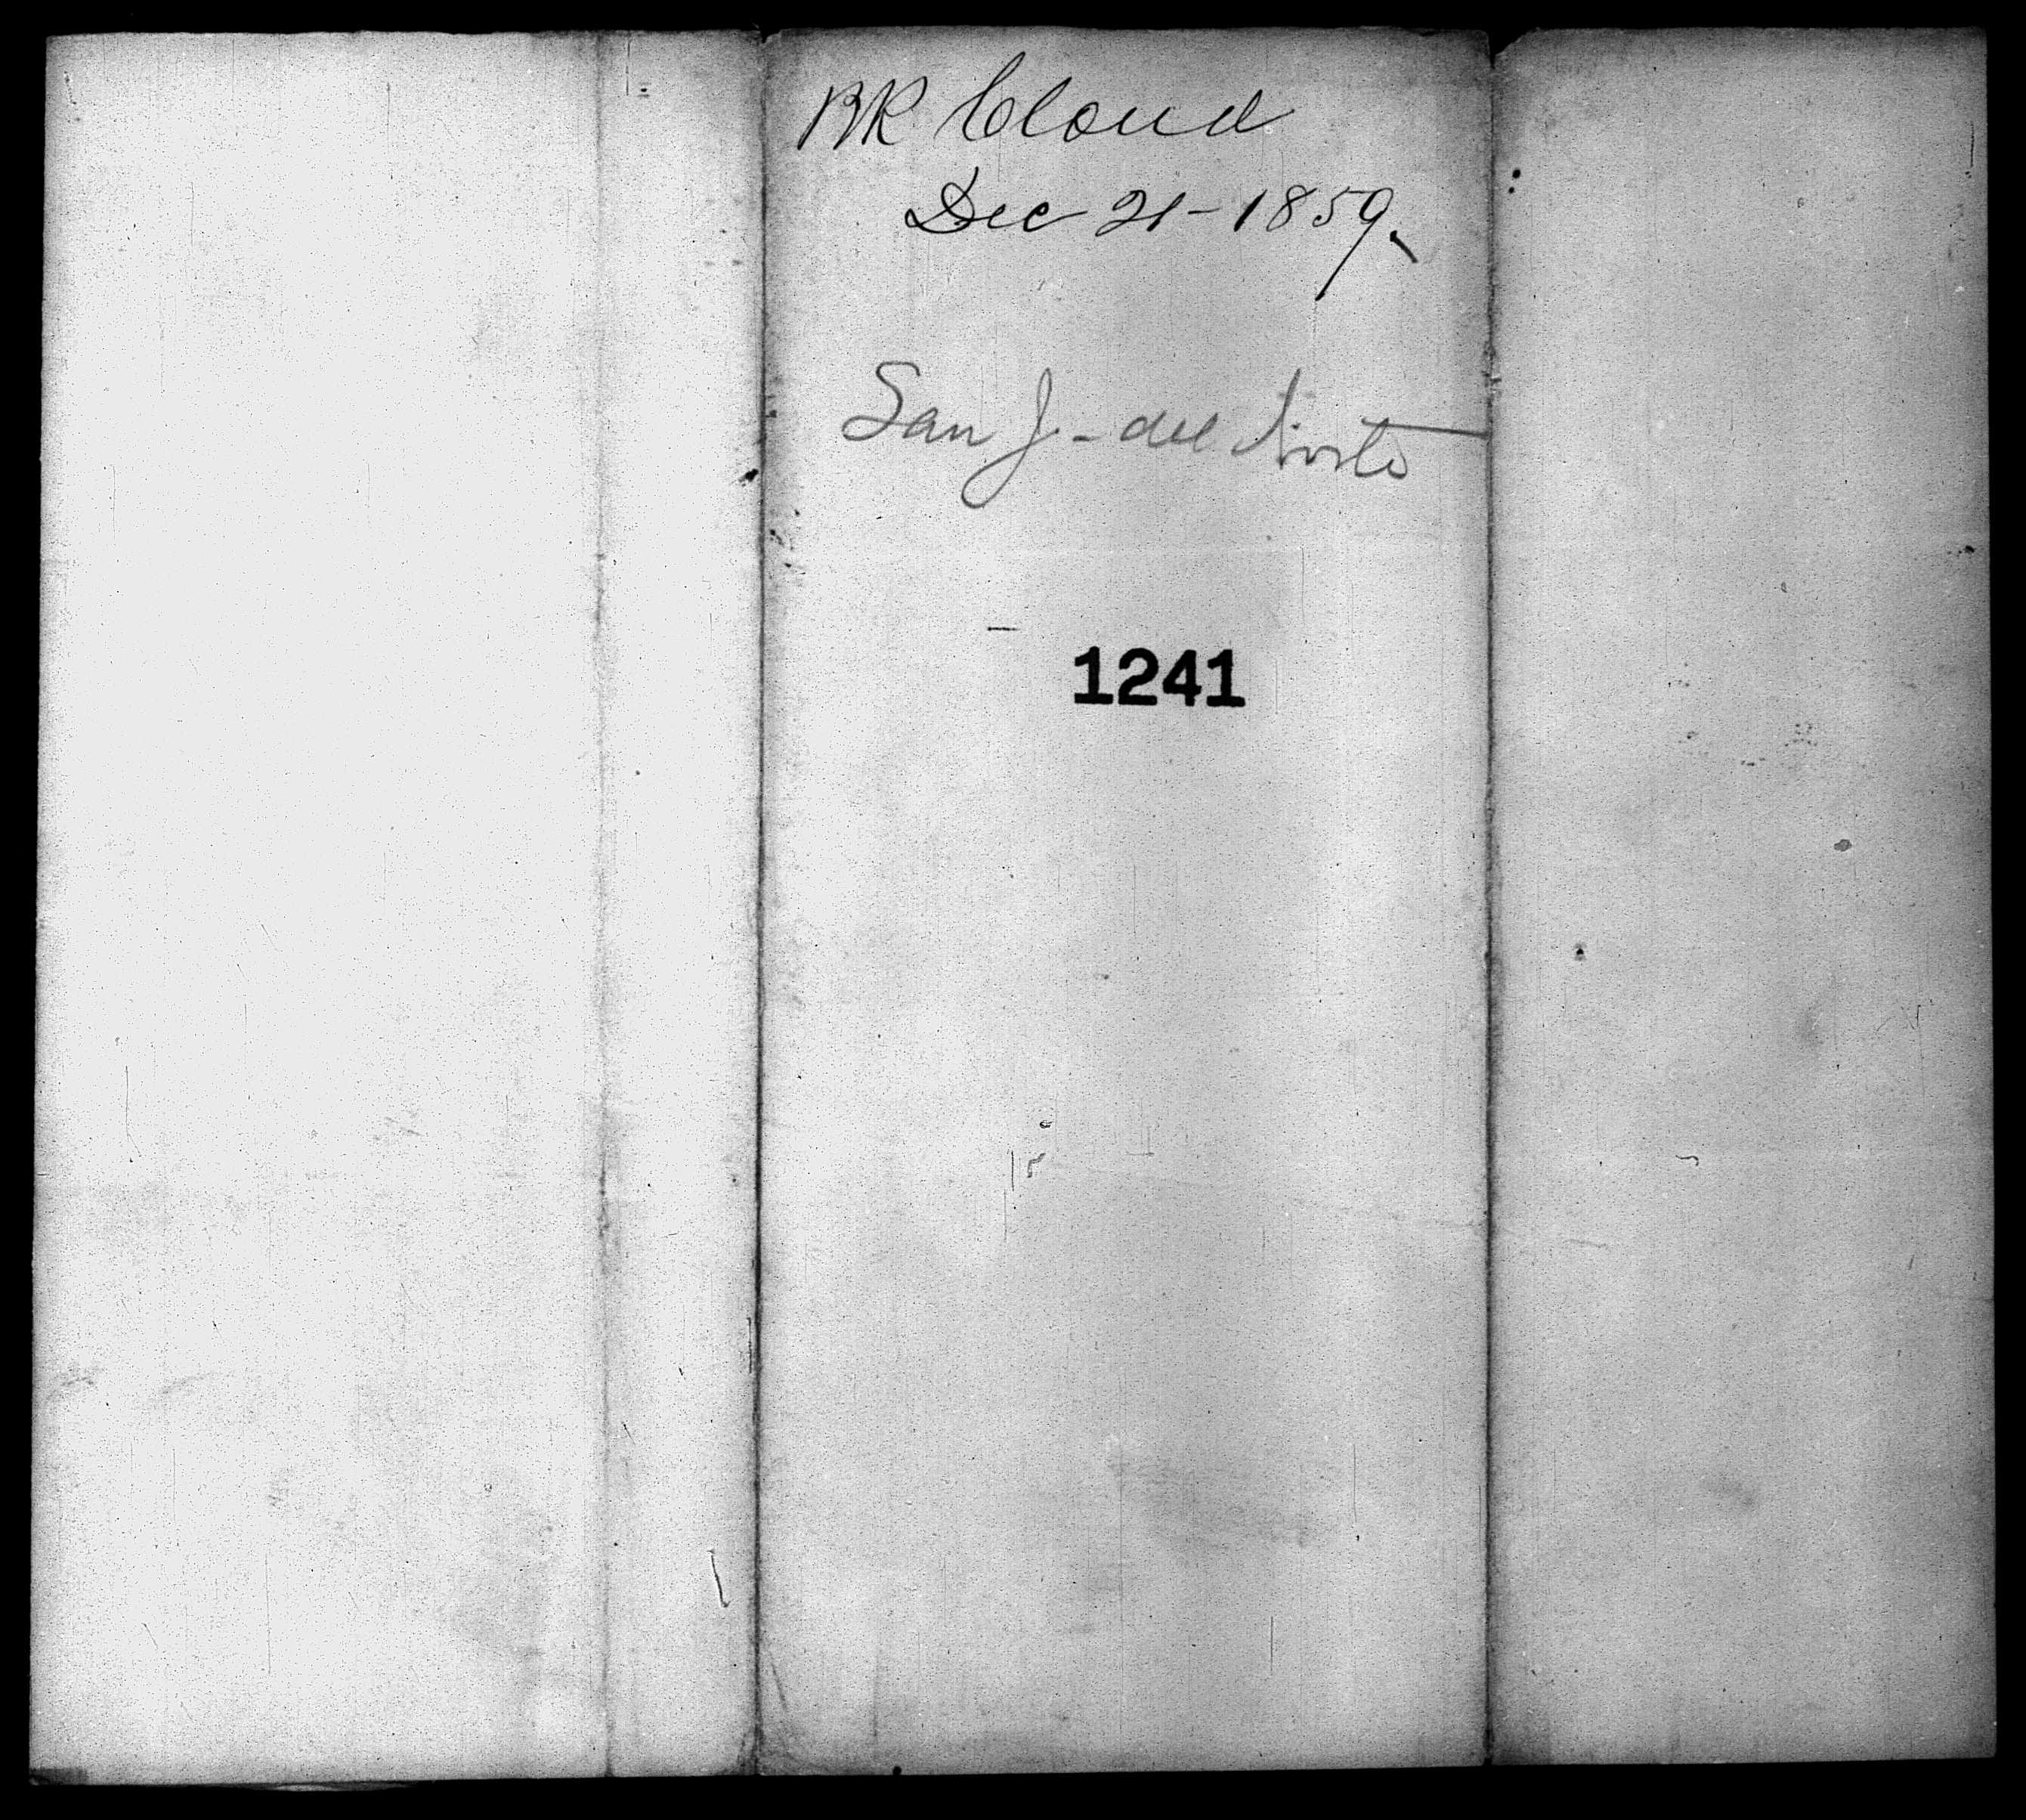 BR Cloud
Dec 21-1859.
San J-del Norte
1241